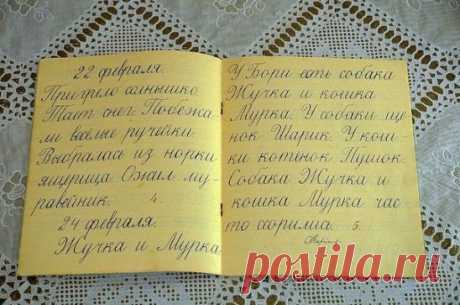 22 февраля.
Пригрело солнышко.
Тает снег. Побежа-
ли весёлые ручейки.
Выбралась из норки
ящерица. Ожил му-
равейник. 4.
24 февраля.
Жучка и Мурка.
У Бори есть собака
Жучка и кошка
Мурка. У собаки ще-
нок Шарик. У кош-
ки котёнок Пушок.
Собака Жучка и
кошка Мурка час-
то ссорились. 5.
postila.ru